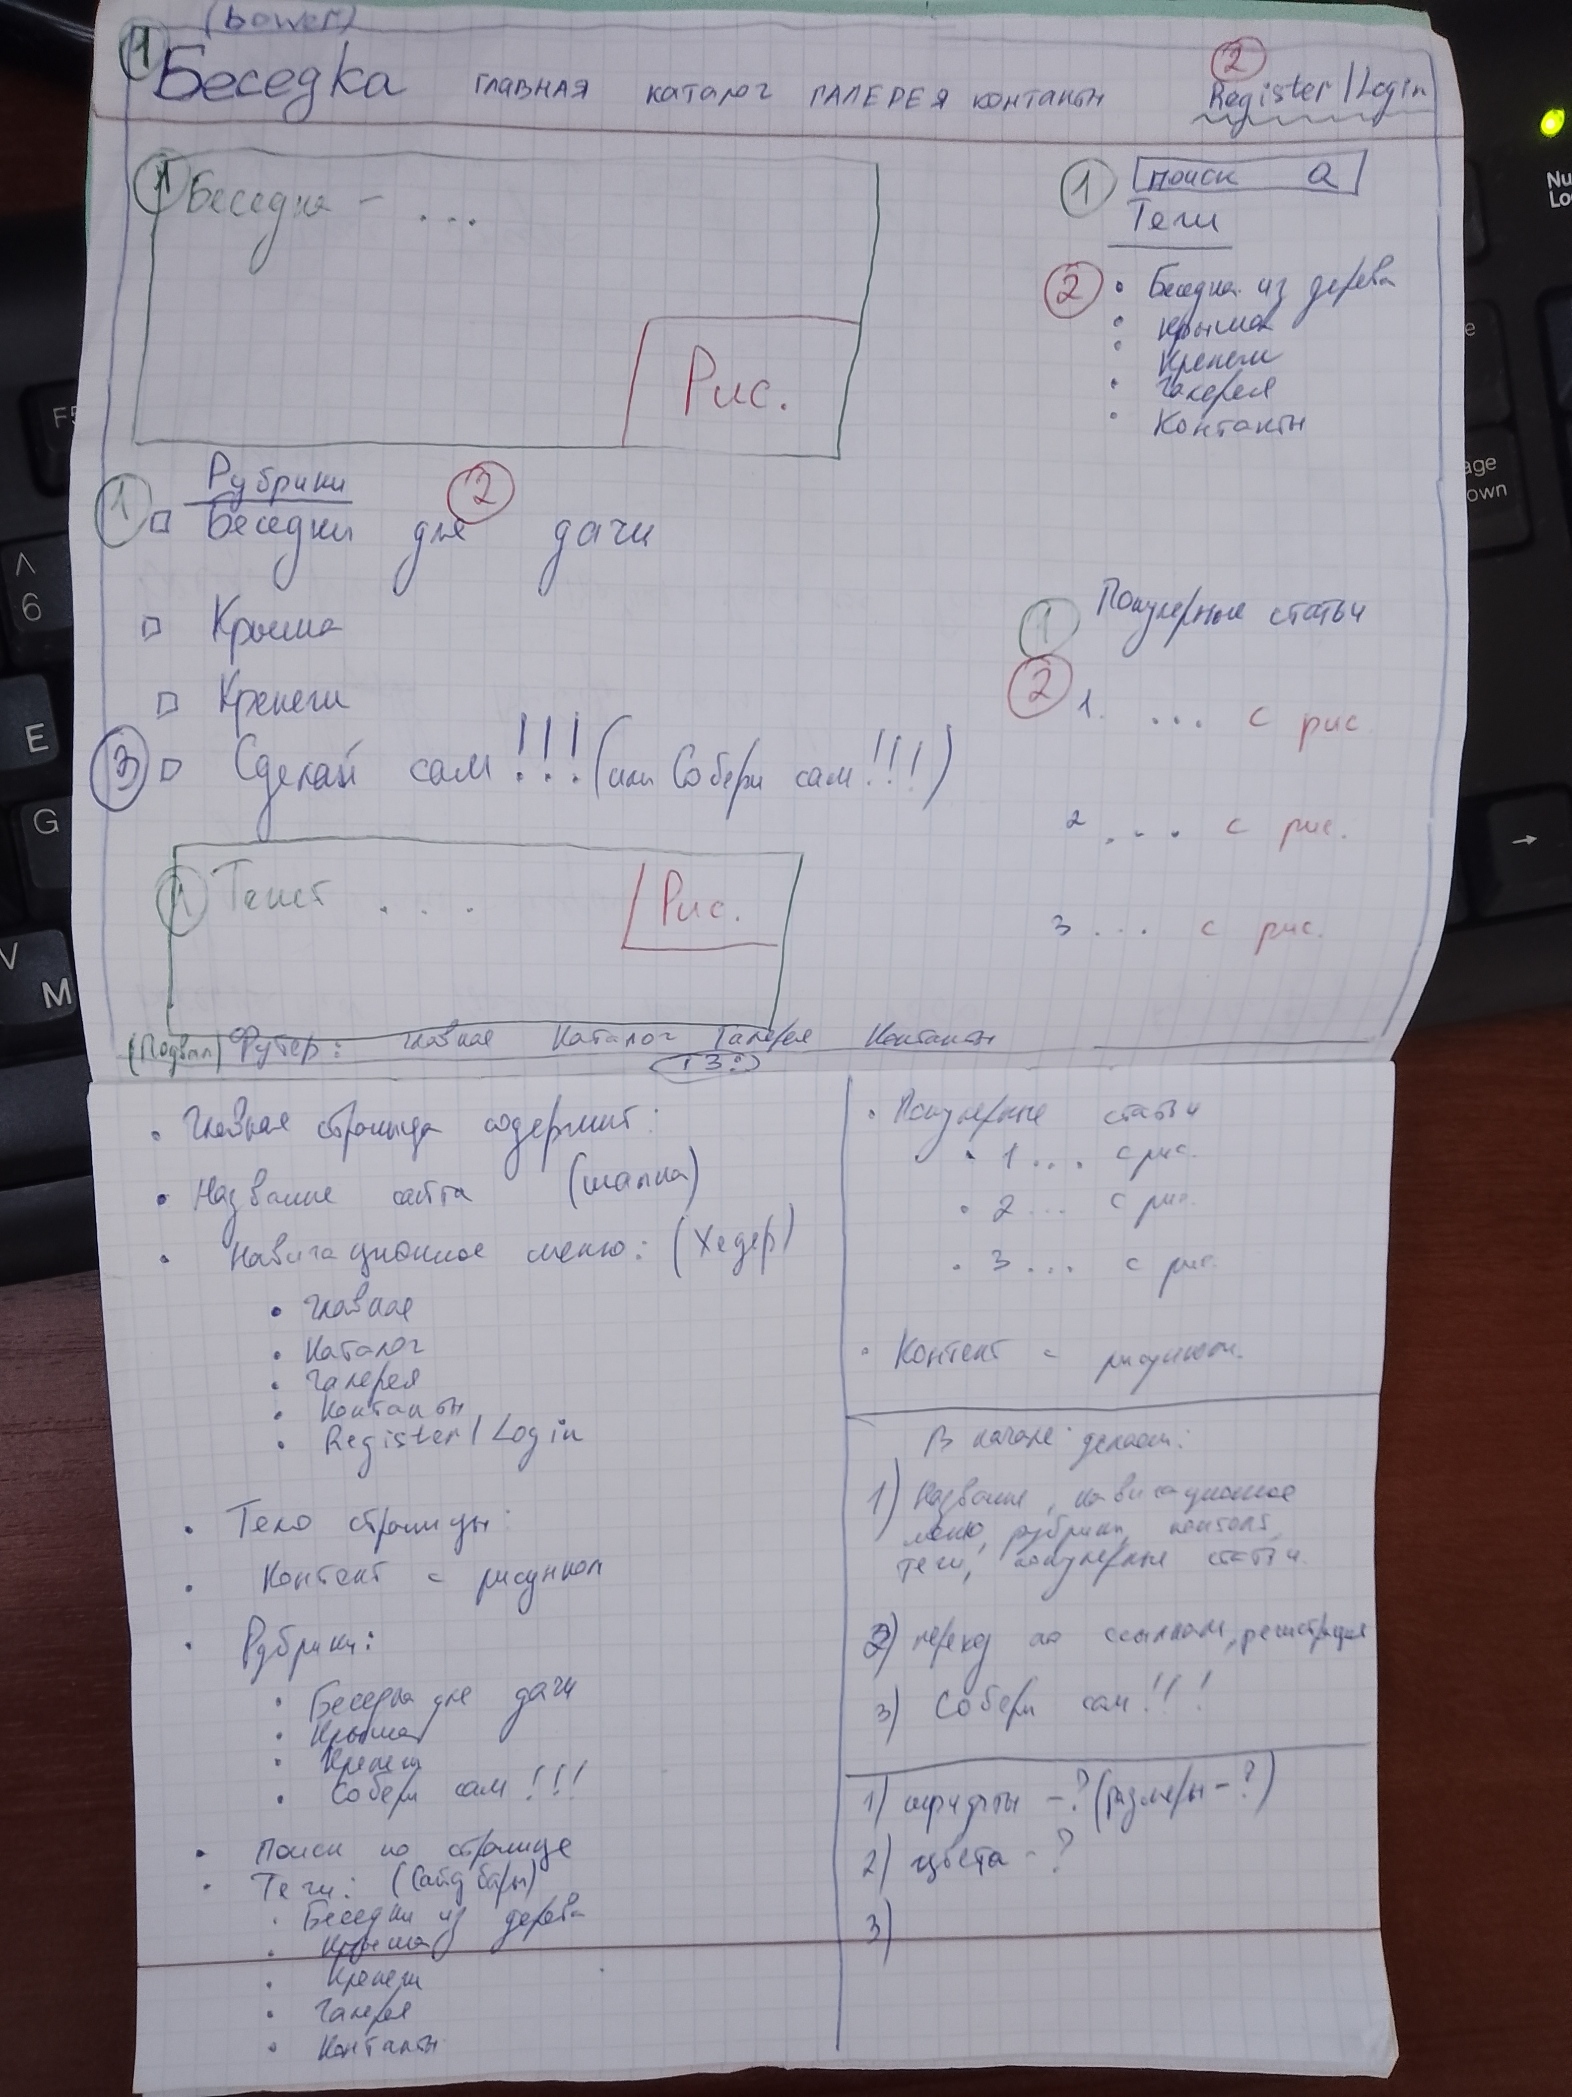 (bower)
1 Беседка главная каталог ГАЛЕРЕЯ контакты
2
Register/Login
1 Беседка - ...
Рис.
1 поиск
Теги
2
• Беседка из дерева
• крыша
• Крепеж
• Галерея
• Контакты
Рубрики 2
1 Беседки для дачи
Крыша
Крепеж
3 Сделай сам!!! (или Собери сам!!!)
1 Популярные статьи
2
1. ... с рис
2 ... с рис.
3 ... с рис.
1 Текст ... Рис.
(Подвал) Футер: главная Каталог Галерея Контакты
ТЗ:
• Главная страница содержит:
• Название сайта (шапка)
• Навигационное меню: (Хедер)
• главная
• Каталог
• Галерея
• Контакты
• Register/Login
• Тело страницы:
• Контент с рисунком
• Рубрики:
• Беседка для дачи
• Крыша
• Крепеж
• Собери сам!!!
• Поиск по странице
• Теги: (Сайдбары)
• Беседки из дерева
• Крыша
• Крепеж
• Галерея
• Контакты
• Популярные статьи
• 1 ... с рис.
• 2 ... с рис.
• 3 ... с рис.
• Контент с рисунком.
В начале делаем:
1) Название, навигационное
меню, рубрики, контент,
теги, популярные статьи.
2) переход по ссылкам, регистрация
3) Собери сам!!!
1) шрифты - ? (размеры - ?)
2) цвета - ?
3)
F5
^
6
E
G
V
M
Nu
Lo
e
age
own
→